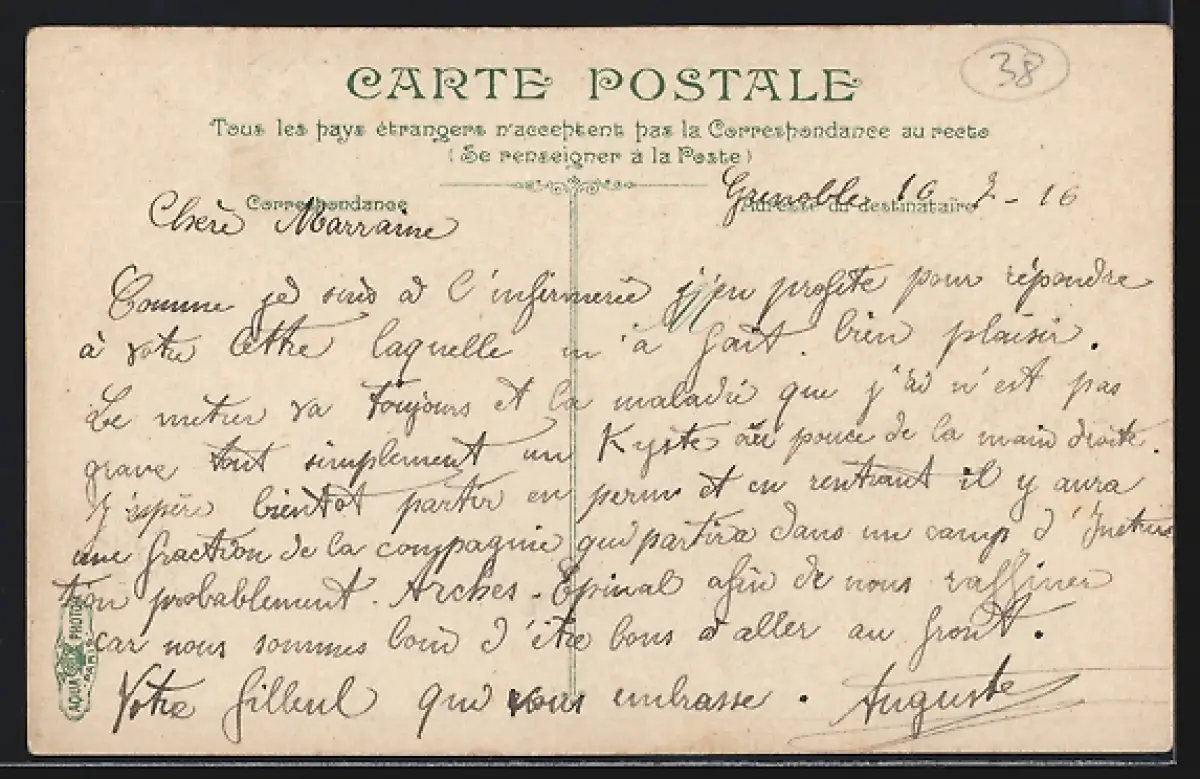 38
CARTE POSTALE
Tous les pays étrangers n'acceptent pas la Correspondance au recto
(Se renseigner à la Poste)
Correspondance
Adresse du destinataire
Grenoble 16 - 16
Chère Marraine
Comme je suis à l'infirmerie j'en profite pour répondre
à votre lettre laquelle m'a fait bien plaisir.
Le métier va toujours et la maladie que j'ai n'est pas
grave tout simplement un Kyste au pouce de la main droite.
J'espère bientôt partir en perm et en rentrant il y aura
une fraction de la compagnie qui partira dans un camp d'Instruc
tion probablement. Arches - Epinal afin de nous raffiner
car nous sommes loin d'être bons à aller au front.
Votre filleul qui vous embrasse. Auguste
AQUA PHOTO
PARIS